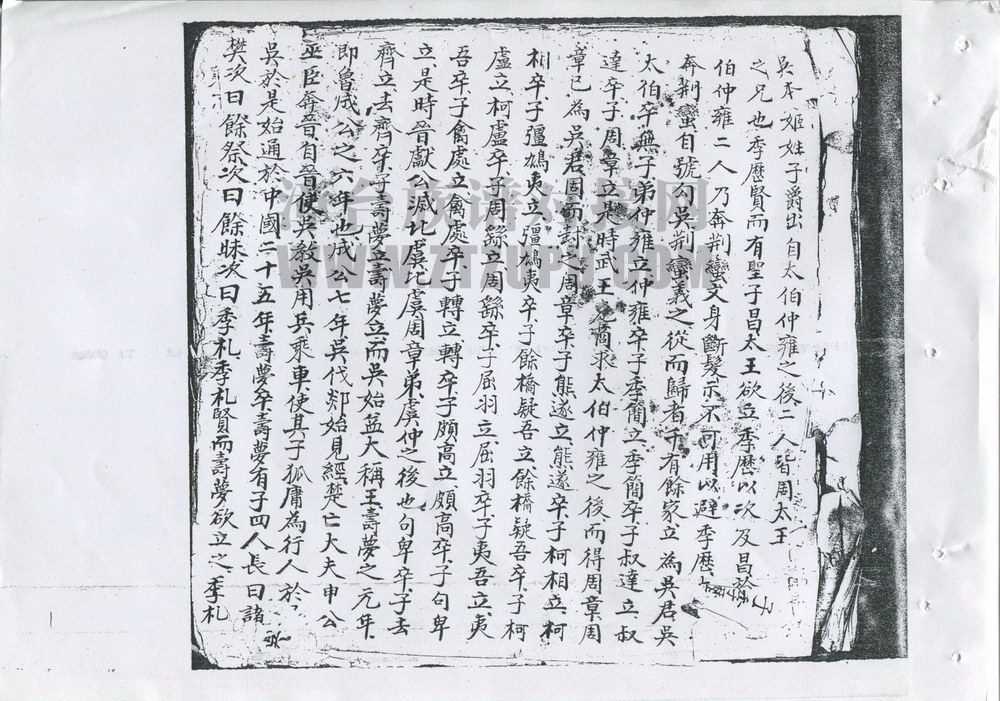 吳本姬姓子爵出自太伯仲雍之後二人皆周太王
之兄也季歷賢而有聖子昌太王欲立季歷以次及昌於
伯仲雍二人乃奔荆蠻文身斷髮示不可用以避季歷
奔荆蠻自號勾吳荆蠻義之從而歸者千有餘家立為吳君吳
太伯卒無子弟仲雍立仲雍卒子季簡立季簡卒子叔達立叔
達卒子周章立是時武王克商求太伯仲雍之後而得周章周
章已為吳君因而封之周章卒子熊遂立熊遂卒子柯相立柯
相卒子彊鳩夷立彊鳩夷卒子餘橋疑吾立餘橋疑吾卒子柯
盧立柯盧卒子周繇立周繇卒子屈羽立屈羽卒子夷吾立夷
吾卒子禽處立禽處卒子轉立轉卒子頗高立頗高卒子句卑
立是時晉獻公滅北虞北虞周章弟虞仲之後也句卑卒子去
齊立去齊卒子壽夢立壽夢立而吳始益大稱王壽夢之元年
即魯成公之六年也成公七年吳伐郯始見經楚亡大夫申公
巫臣奔晉自晉使吳教吳用兵乘車使其子狐庸為行人於
吳於是始通於中國二十五年壽夢卒壽夢有子四人長曰諸
樊次曰餘祭次曰餘昧次曰季札季札賢而壽夢欲立之季札
WWW.TZJPU.COM